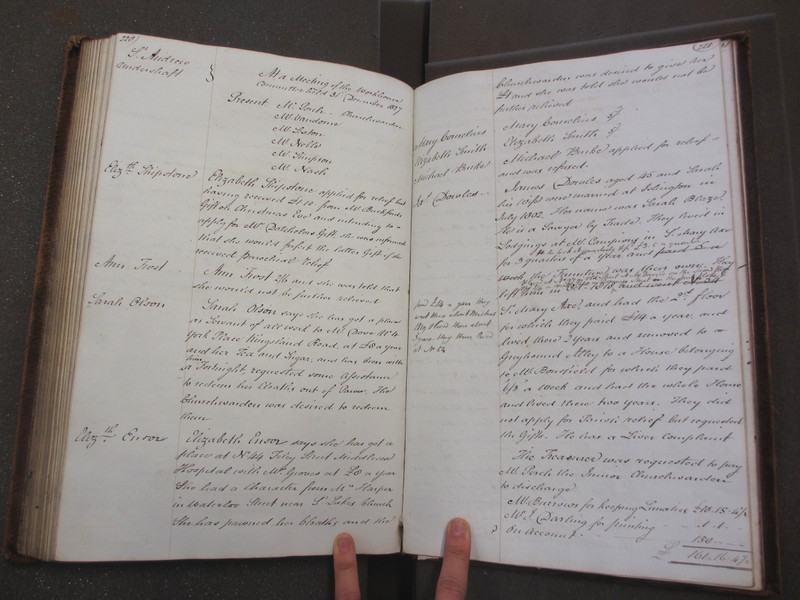 220
St. Andrew
Undershaft
At a Meeting of the Workhouse
Committee held 31 December 1827
Present Mr. Churchwarden
Mr. Vandome
Mr.
Mr.
Mr. Simpson
Mr. Nash
Elizth. Shipstone
Elizabeth Shipstone applied for relief but
having received from Mr.
Gift on Christmas Eve and intending to
apply for Mr. Gift she was informed
that she would forfeit the latter Gift if she
received Parochial Relief
Ann Frost
Ann Frost 2/6 and she was told that
she would not be further relieved
Sarah Olson
Sarah Olson says she has got a place
as Servant of all work to Mr. No. 4
York Place Kingsland Road, at £8 a year
and her Tea and Sugar, and has been with
him
a Fortnight, requested some Assistance
to redeem her Cloaths out of Pawn. The
Churchwarden was desired to redeem
them
Elizth. Ensor
Elizabeth Ensor says she has got a
place at No. 44 Street
Hospital with Mr. Groves at £8 a year
She had a Character from Mrs. Harper
in Waterloo Street near St. Lukes Church
She has pawned her Cloaths and the
221
Churchwarden was desired to give her
£1 and she was told she would not be
further relieved
Mary Cornelius
Mary Cornelius
Elizabeth Smith
Elizabeth Smith
Michael Burke
Michael Burke applied for relief
and was refused.
Js. Dowles
James Dowles aged 45 and Sarah
his Wife were married at Islington in
July 1802. Her name was Sarah
He is a Sawyer by Trade. They lived in
Lodgings at Mr. in St. Mary Axe
for 3 quarters of a Year and paid
week the Furniture was their own. They
left him in 1818 and went No. 54
St. Mary Axe and had the 2nd. floor
for which they paid £14 a year, and
paid £14 a year they
went there about
lived there about
years they then lived
at No. 54
lived there 2 Years and removed to
Greyhound Alley to a House belonging
to Mr. Bousfield for which they paid
4/6 a week and had the whole House
and lived there two years. They did
not apply for Parish relief but requested
the Gifts. He has a Liver Complaint
The Treasurer was requested to pay
Mr. the Junior Churchwarden
to discharge
Mr. for keeping Lunatics £10.15.4½
Mr. J. Darling for printing 1.1.-
On Account 150
£ 161.16.4½